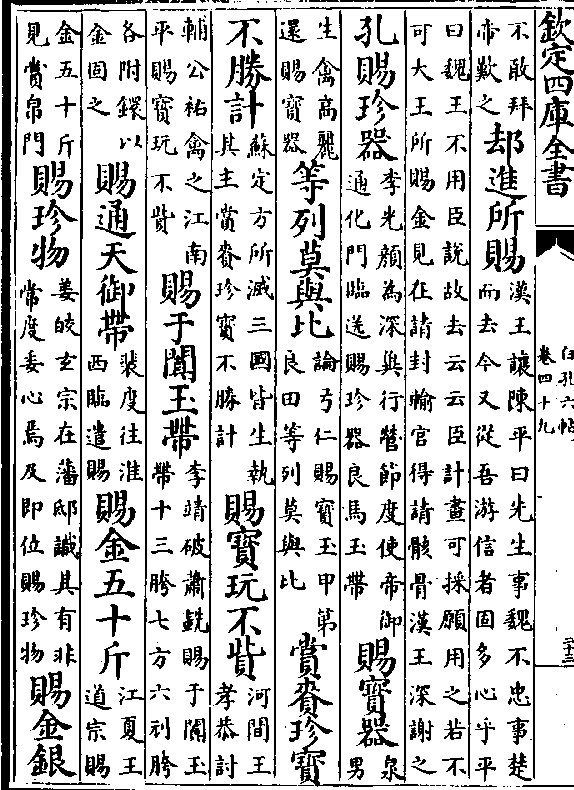 欽定四庫全書
白孔六帖
卷四十九
二十三
不敢拜
帝歎之
却進所賜
漢王讓陳平曰先生事魏不忠事楚
而去今又從吾游信者固多心乎平
曰魏王不用臣說故去云云臣計畫可採願用之若不
可大王所賜金見在請封輸官得請骸骨漢王深謝之
孔賜珍器
李光顏為深與行營節度使帝御
通化門臨送賜珍器良馬玉帶
賜寶器
泉
男
生禽高麗
還賜寶器
等列莫與比
論弓仁賜寶玉甲第
良田等列莫與比
賞賚珍寶
不勝計
蘇定方所滅三國皆生執
其主賞賚珍寶不勝計
賜寶玩不貲
河間王
孝恭討
輔公祐禽之江南
平賜寶玩不貲
賜于闐玉帶
李靖破蕭銑賜于闐玉
帶十三胯七方六刓胯
各附鐶以
金固之
賜通天御帶
裴度往淮
西臨遣賜
賜金五十斤
江夏王
道宗賜
金五十斤
見賞帛門
賜珍物
姜皎玄宗在藩邸識其有非
常度委心焉及即位賜珍物
賜金銀